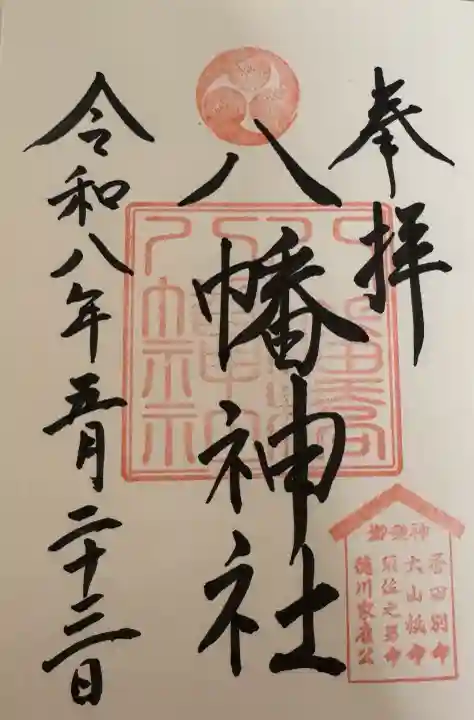 奉拝
八幡神社
令和八年五月二十三日
御祭神
誉田別命
大山祇命
須佐之男命
徳川家康公